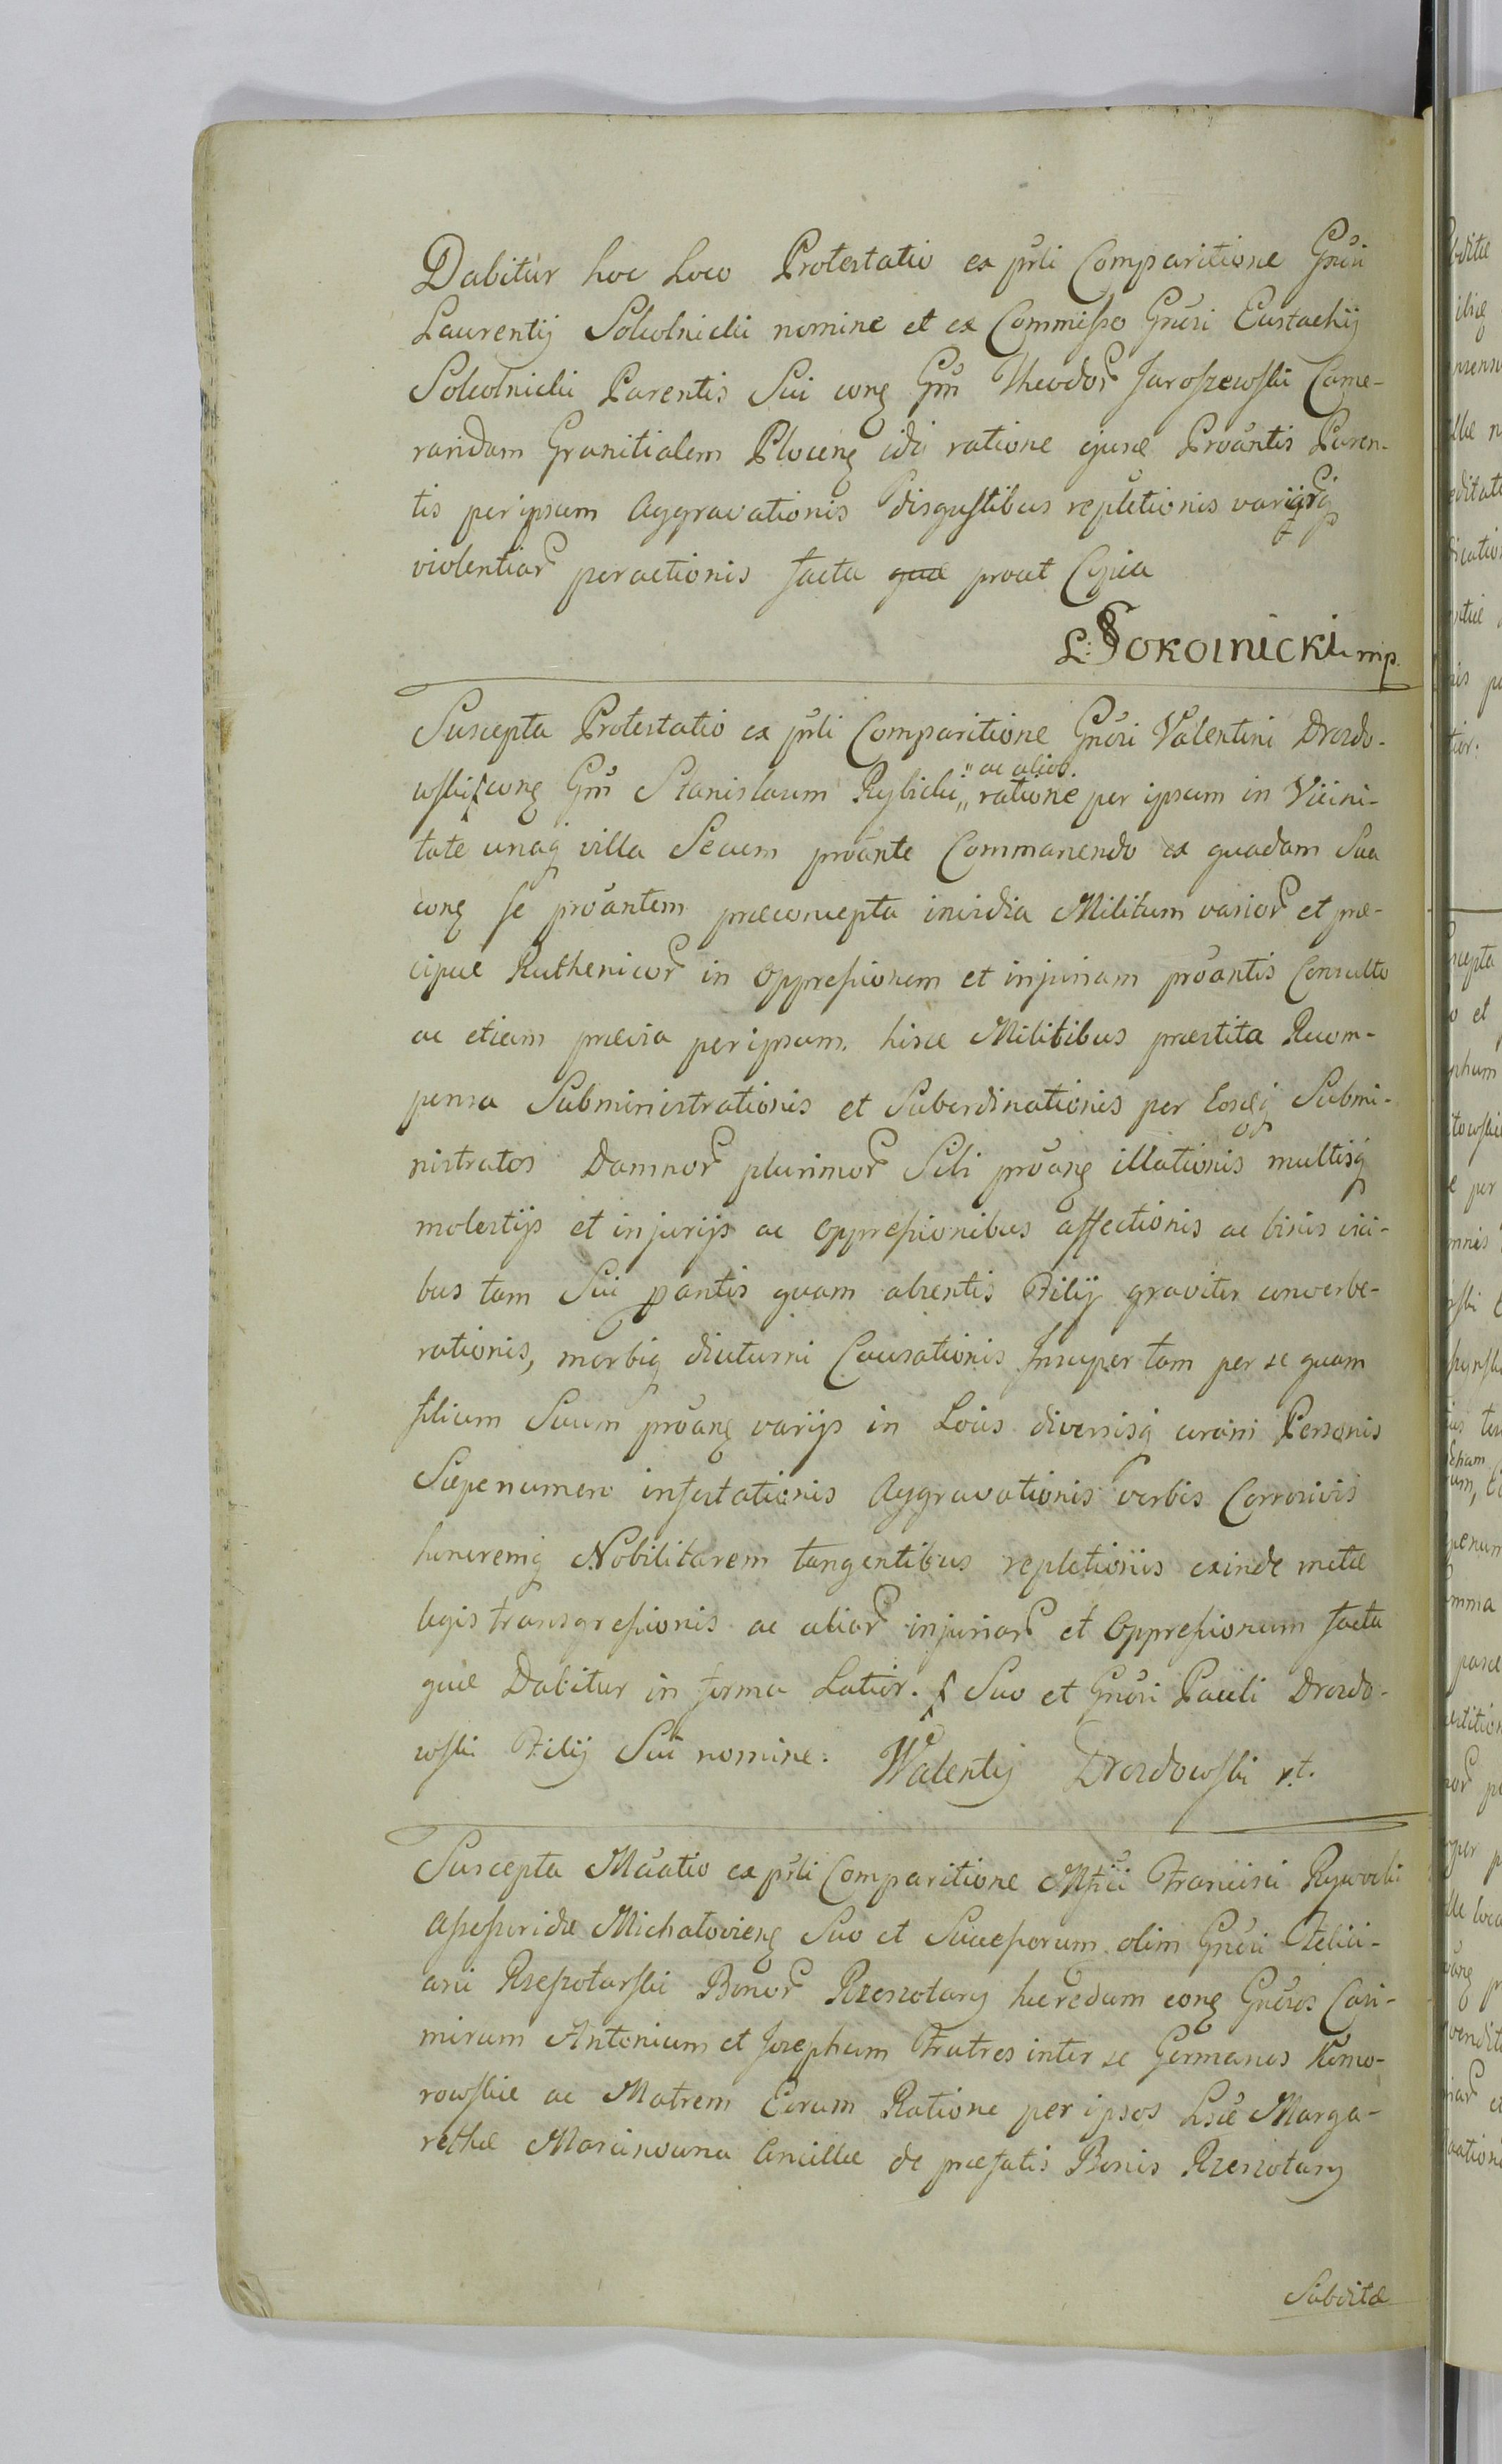 Dabitur hoc Loco Protestatio ex prli Comparitione Gnri
Laurentij Sokolnicki nomine et ex Commisso Gnrsi Eustachij
Sokolnicki Parentis Sui conq Gm Theodor Jaroszewski Came-
randam Granitialem Plocenq ratione ejusce Proantis Paren-
tis per ipsum Aggravationis disgustibus repletionis varijsq
violentiar peractionis facta prout Copia
L: Sokolnicki mp.
Suscepta Protestatio ex prli Comparitione Gnrsi Valentini Drozdo-
wski conq Gm Stanislaum Rybicki ratione per ipsum in Vicini-
ac alior.
tate unaq villa Secum proante Commanendo ex quadam Sua
conq se proantem praeconcepta invidia Militum varior et prae-
cipue Ruthenicor in oppressionem et injuriam proantis Consulto
ac etiam praevia per ipsum hisce Militibus praestita Recom-
pensa Subministrationis et Subordinationis per Eosdq Submi-
nistratos Damnor plurimor Sibi proanq illationis multisq
molestijs et injurijs ac oppressionibus affectionis ac binis vici-
bus tam Sui pantis quam absentis Filij graviter converbe-
rationis, morbiq diuturni Causationis Insuper tam per se quam
filium Suum proanq varijs in Locis diversisq coram Personis
Saepenumero infestationis Aggravationis verbis Corrosivis
honoremq Nobilitarem tangentibus repletionis exinde metae
legis transgressionis ac aliar injuriar et Oppressionum facta
quae Dabitur in forma Latior. Suo et Gnrsi Pauli Drozdo-
wski Filij Sui nomine. Walentij Drozdowski
Suscepta Maatio ex prli Comparitione Mfci Francisci Rywocki
Assessoridae Michalovienq Suo et Successorum olim Gnrsi Felici-
ani Rzeszotarski Bonor Rzeszotary haeredum conq Gnrsos Casi-
mirum Antonium et Josephum Fratres inter se Germanos Komo-
rowskie ac Matrem Eorum Ratione per ipsos Lsae Marga-
rethae Marcinowna Ancillae de praefatis Bonis Rzeszotary
Subditae